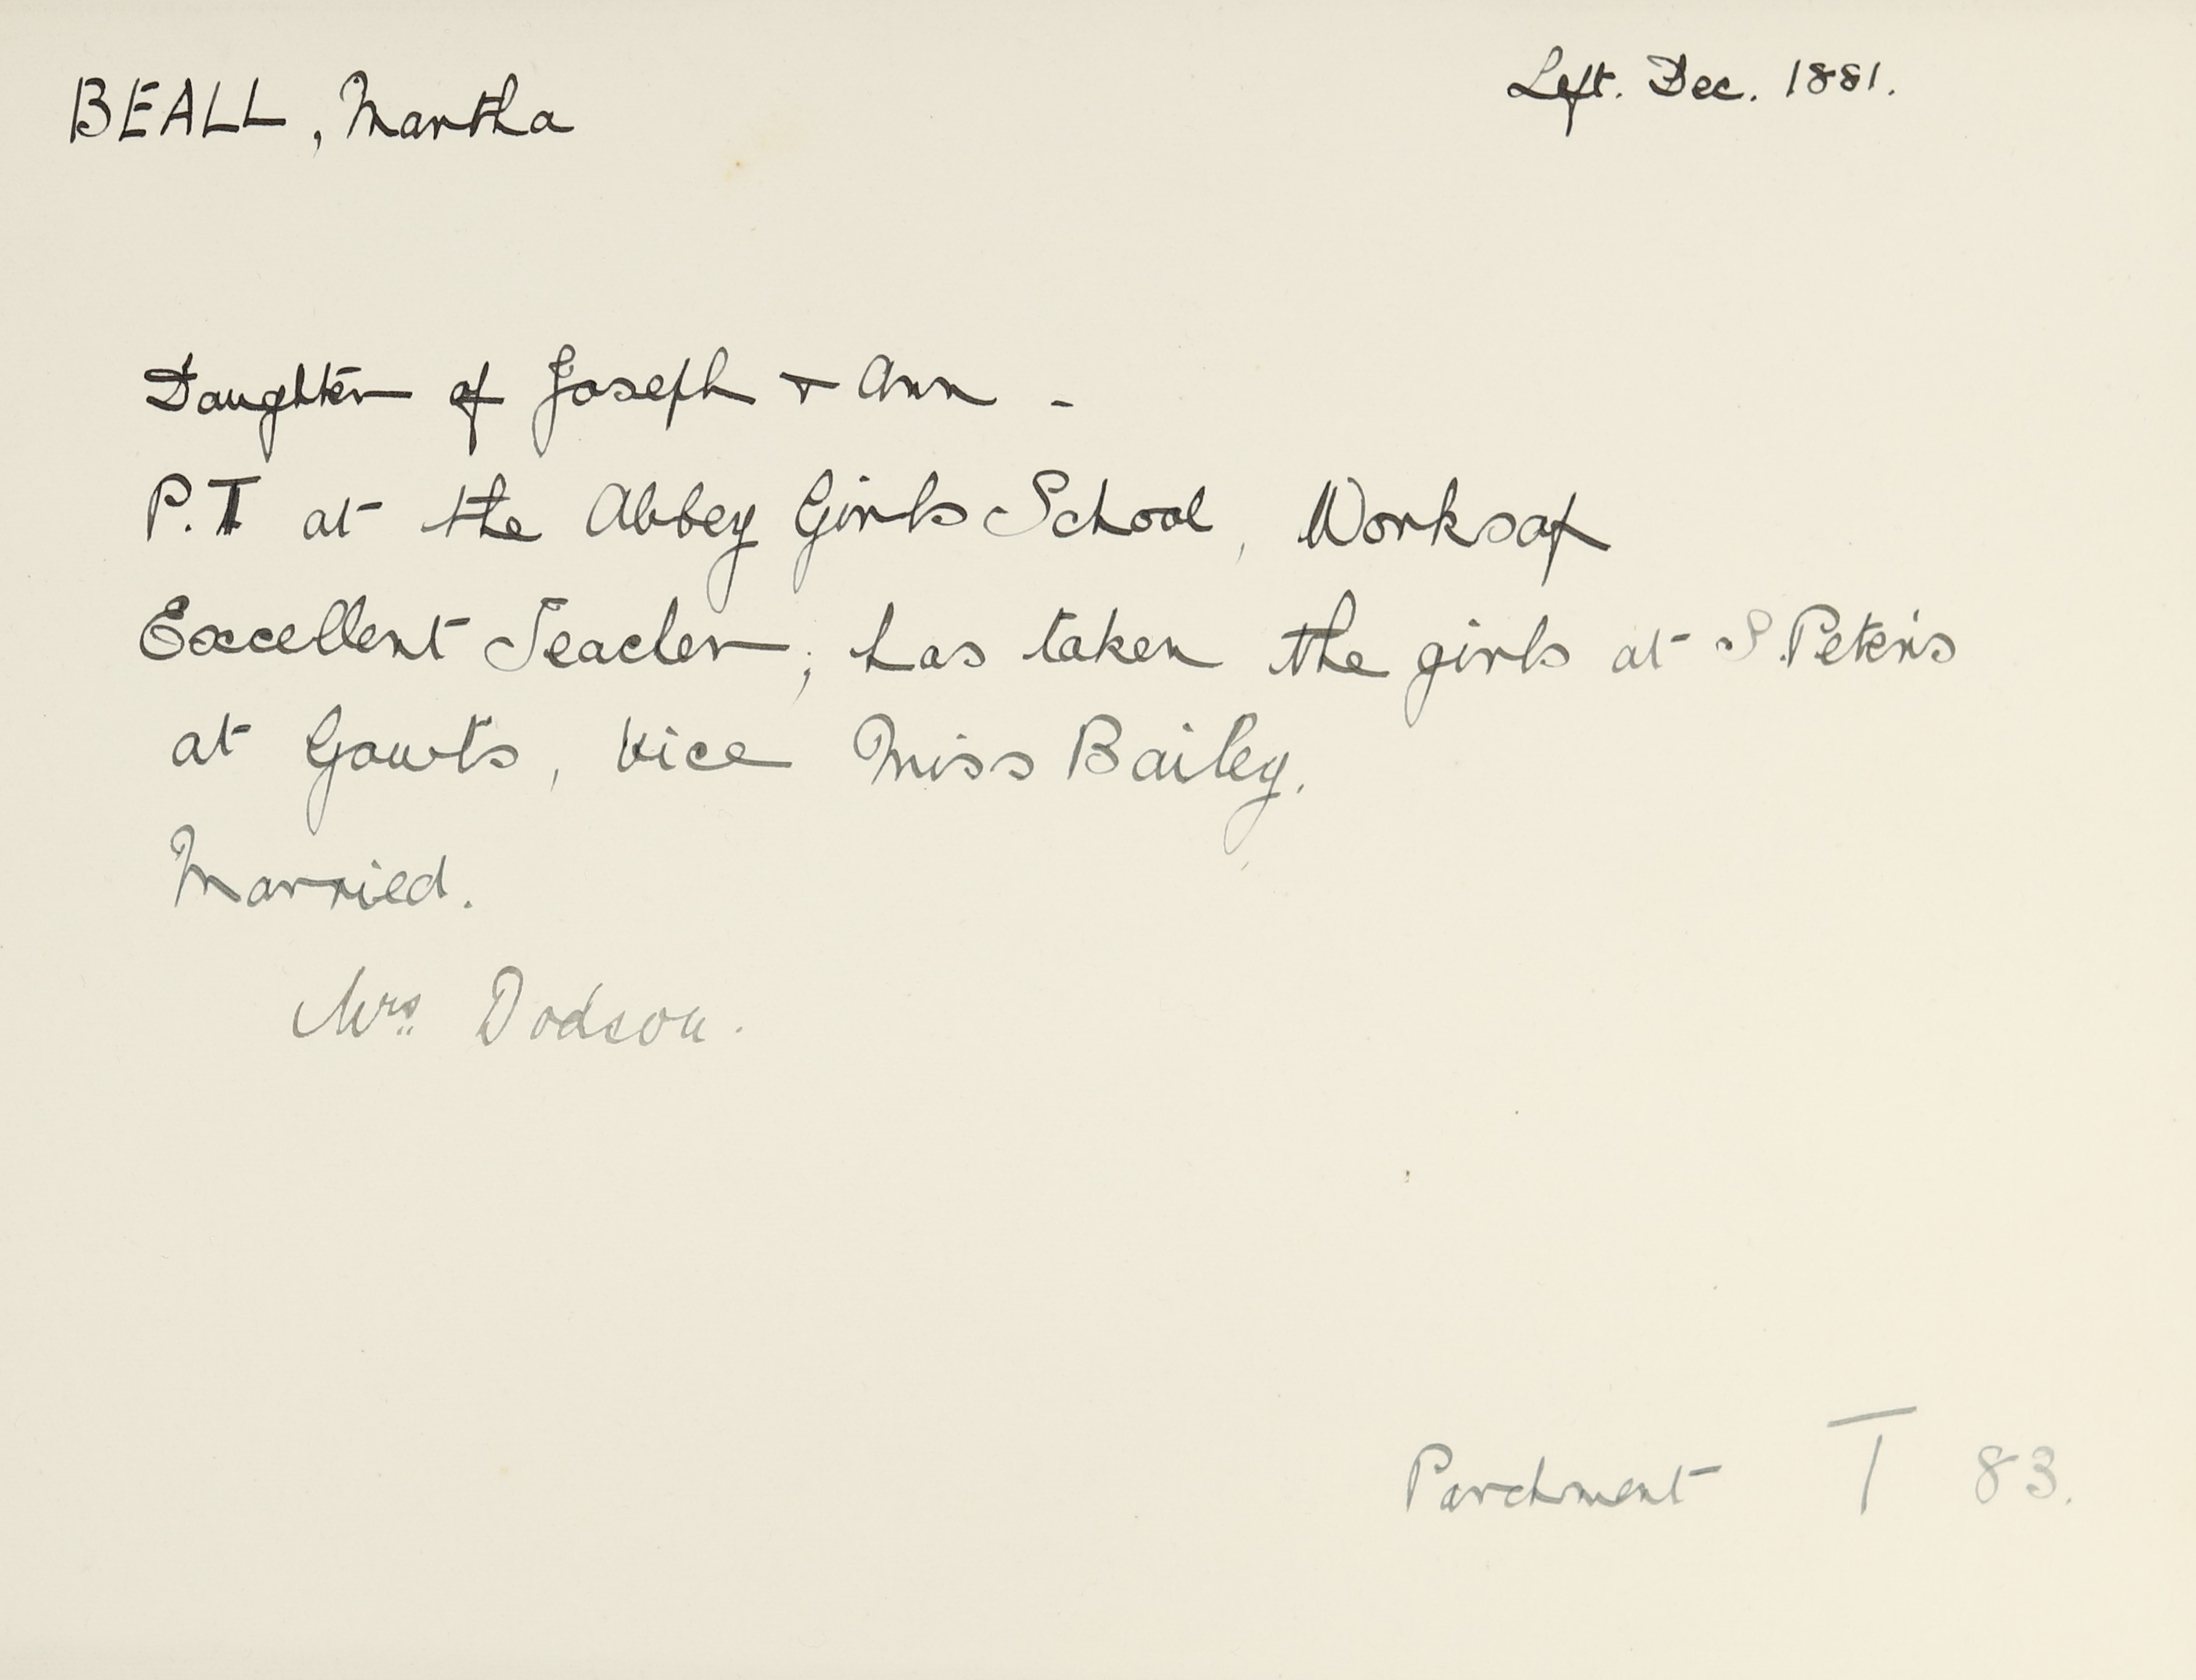 BEALL, Martha Left. Dec. 1881.
Daughter of Joseph & Ann -
P.T at the Abbey Girls School, Worksop
Excellent Teacher; has taken the girls at S. Peter's
at Gowts, vice Miss Bailey.
Married.
Mrs Dodson.
Parchment T 83.